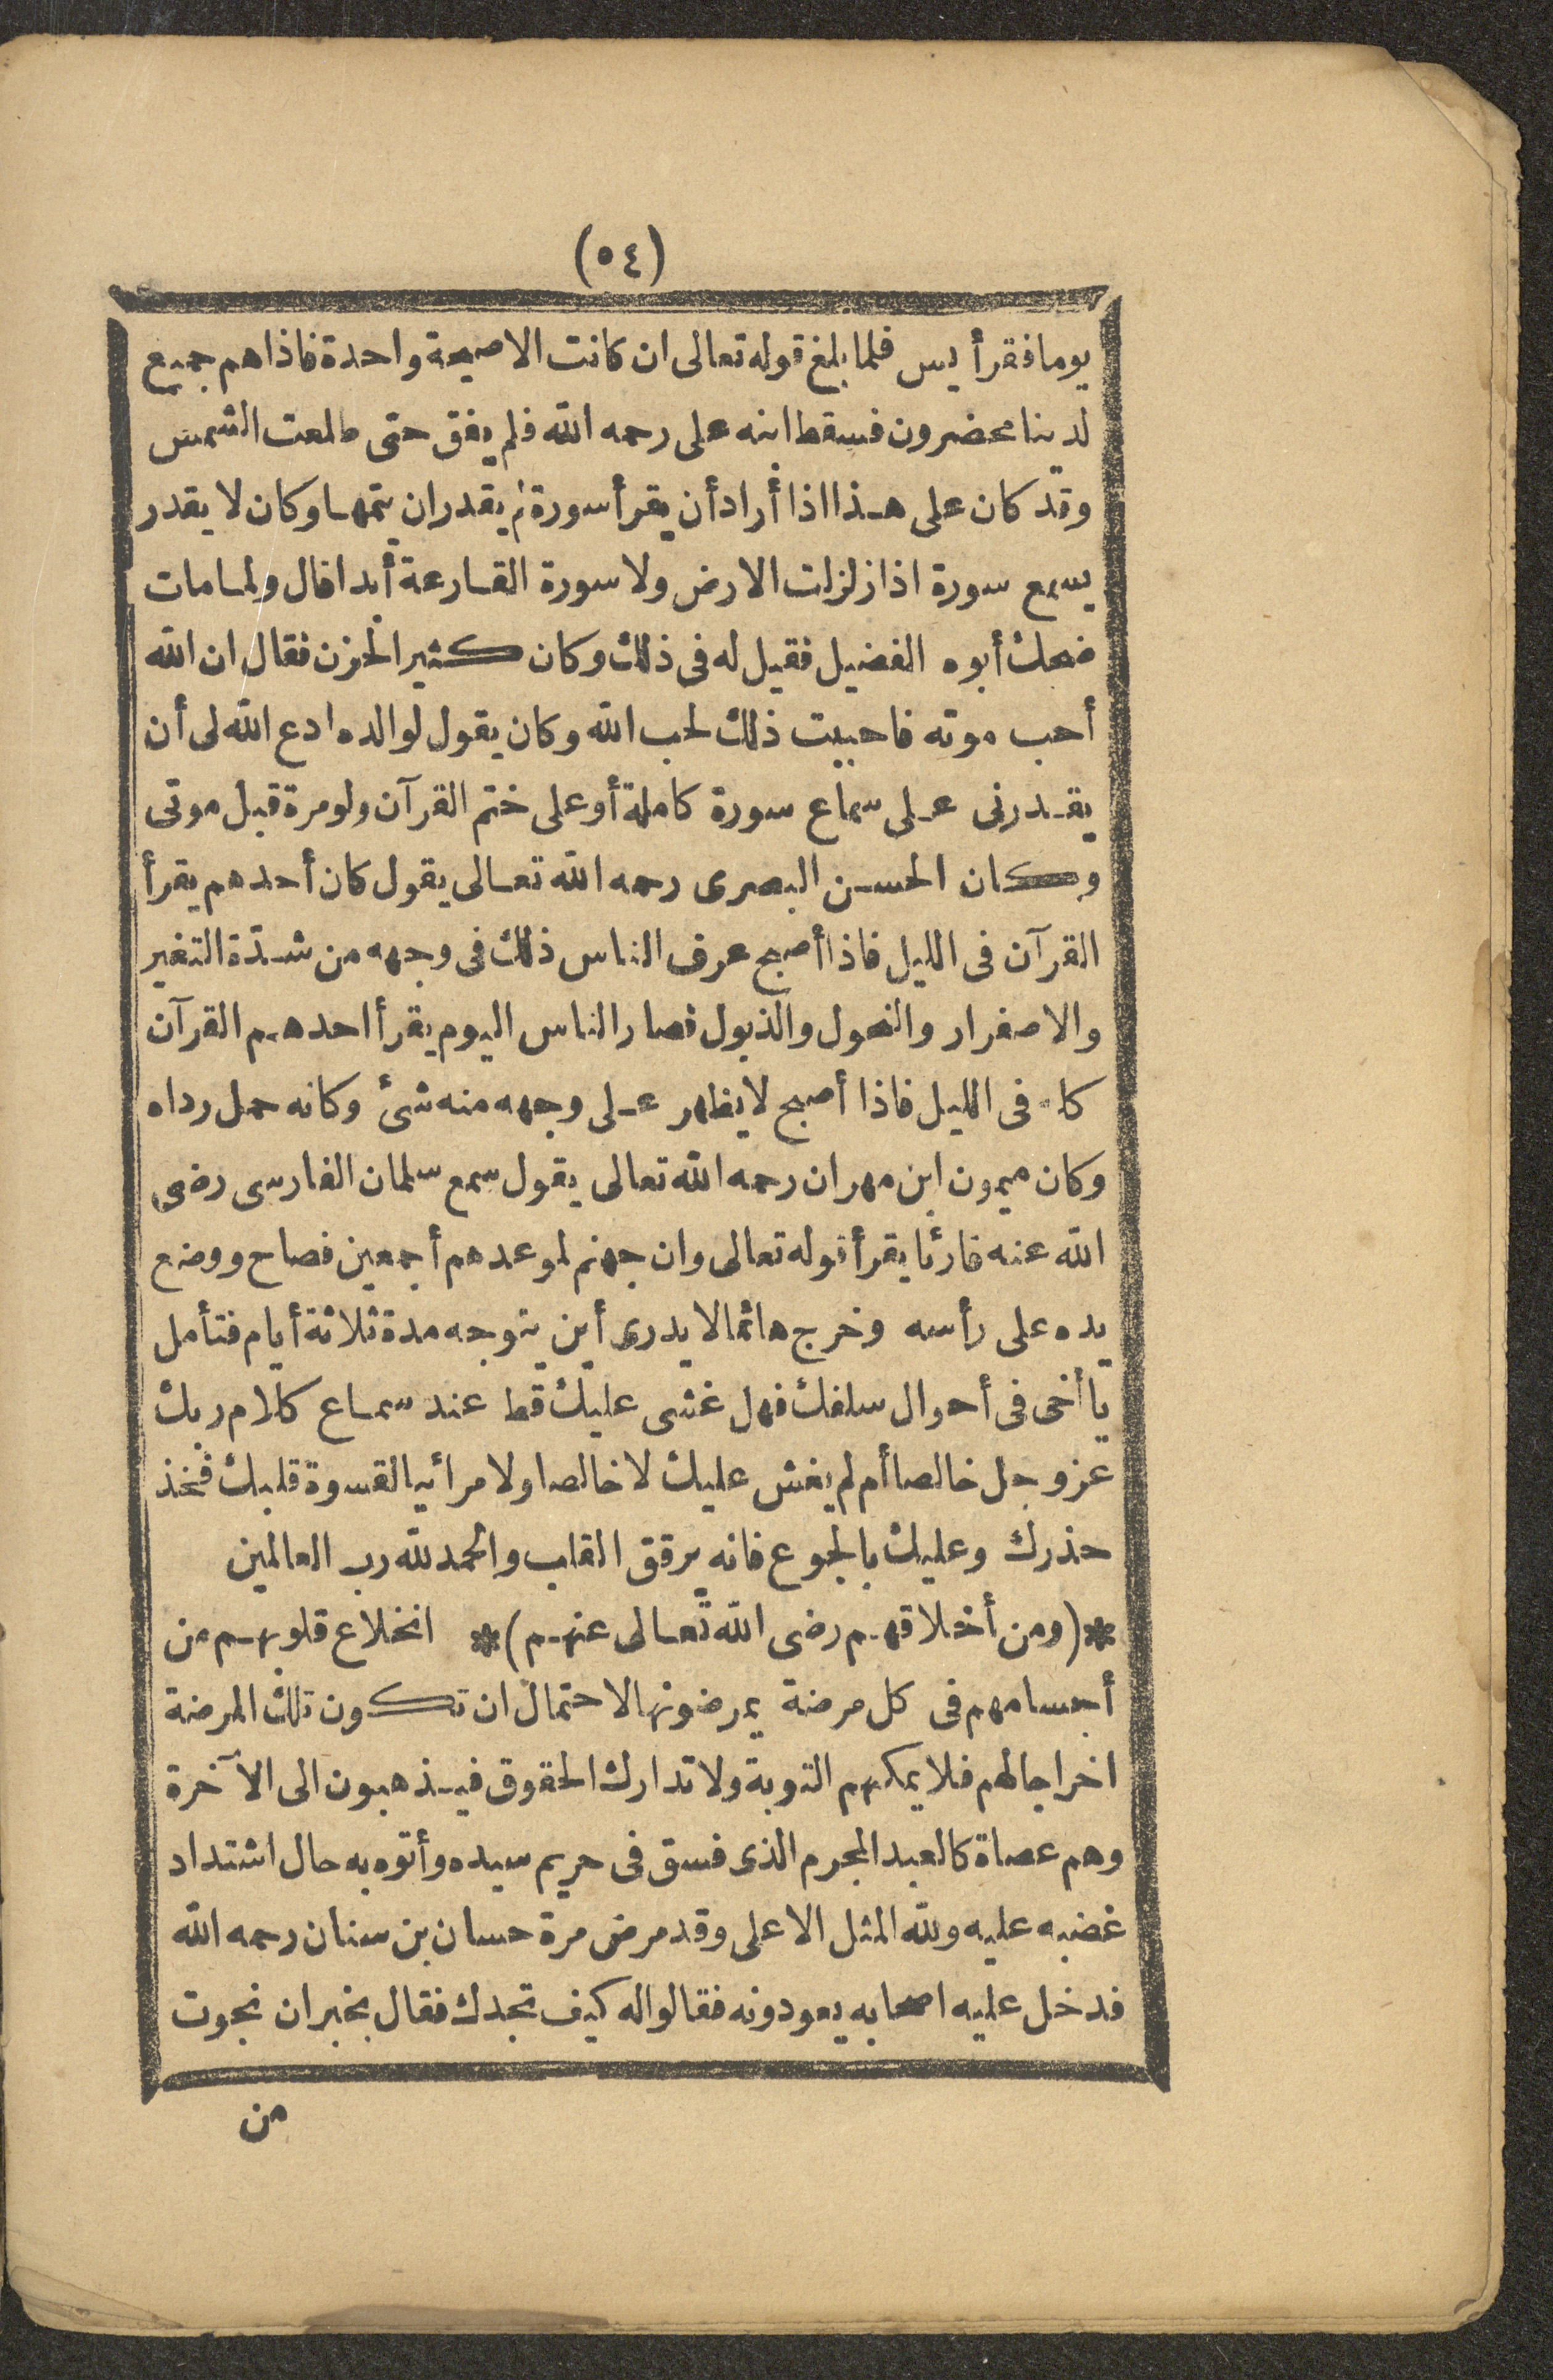 (٥٤)
يوما فقرأ يس فلما بلغ قوله تعالى ان كانت الا صيحة واحدة فاذا هم جميع
لدينا محضرون فسقط ابنه على رحمه الله فلم يفق حتى طلعت الشمس
وقد كان على هذا اذا أراد أن يقرأ سورة لم يقدر ان يتمها وكان لا يقدر
يسمع سورة اذا زلزلت الارض ولا سورة القارعة أبدا قال ولما مات
ضحك أبوه الفضيل فقيل له فى ذلك وكان كثير الحزن فقال ان الله
أحب موته فاحببت ذلك لحب الله وكان يقول لوالده ادع الله لى أن
يقدرنى على سماع سورة كاملة أو على ختم القرآن ولو مرة قبل موتى
وكان الحسن البصرى رحمه الله تعالى يقول كان أحدهم يقرأ
القرآن فى الليل فاذا أصبح عرف الناس ذلك فى وجهه من شدّة التغير
والاصفرار والنحول والذبول فصار الناس اليوم يقرأ احدهم القرآن
كله فى الليل فاذا أصبح لا يظهر على وجهه منه شئ وكانه حمل رداه
وكان ميمون ابن مهران رحمه الله تعالى يقول سمع سلمان الفارسى رضى
الله عنه قارئا يقرأ قوله تعالى وان جهنم لموعدهم أجمعين فصاح ووضع
يده على رأسه وخرج هائما لا يدرى أين يتوجه مدة ثلاثة أيام فتأمل
يا أخى فى أحوال سلفك فهل غشى عليك قط عند سماع كلام ربك
عز وجل خالصا أم لم يغش عليك لا خالصا ولا مرائيا لقسوة قلبك فخذ
حذرك وعليك بالجوع فانه يرقق القلب والحمد لله رب العالمين
*(ومن أخلاقهم رضى الله تعالى عنهم)* انخلاع قلوبهم من
أجسامهم فى كل مرضة يمرضونها لاحتمال ان تكون تلك المرضة
اخراجا لهم فلا يمكنهم التوبة ولا تدارك الحقوق فيذهبون الى الآخرة
وهم عصاة كالعبد المجرم الذى فسق فى حريم سيده وأتوه به حال اشتداد
غضبه عليه ولله المثل الاعلى وقد مرض مرة حسان بن سنان رحمه الله
فدخل عليه اصحابه يعودونه فقالوا له كيف تجدك فقال بخير ان نجوت
من